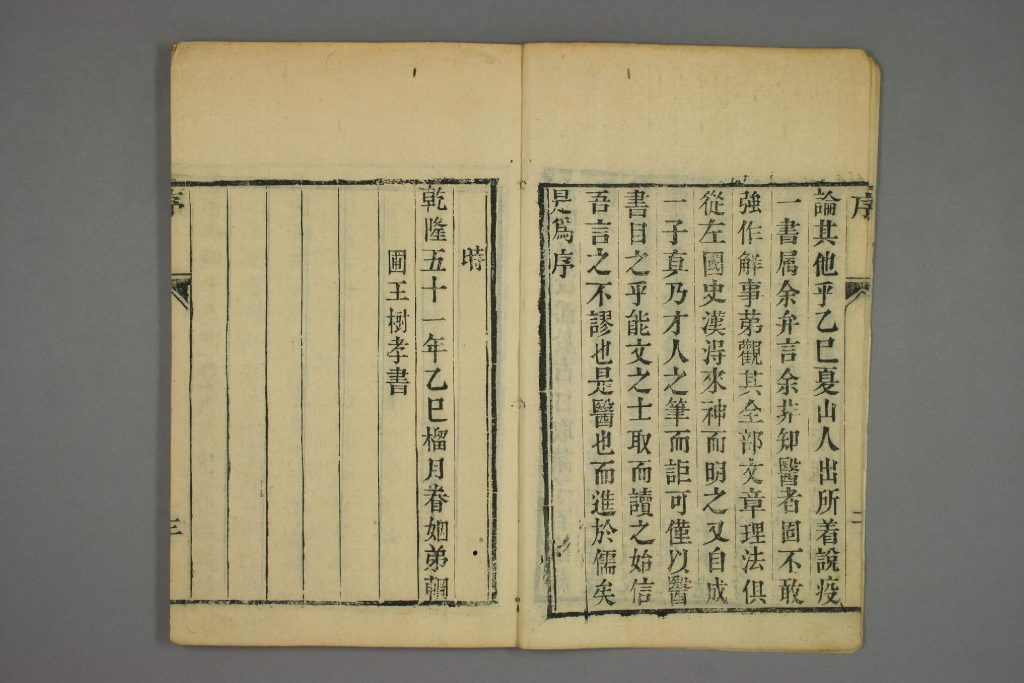 序
論其他乎乙巳夏山人出所着說疫
一書属余弁言余非知醫者固不敢
強作解事苐觀其全部文章理法俱
從左國史漢淂來神而明之又自成
一子真乃才人之筆而詎可僅以醫
書目之乎能文之士取而讀之始信
吾言之不謬也是醫也而進於儒矣
是爲序
二
時
乾隆五十一年乙巳榴月眷姻弟
圃王樹孝書
序
三